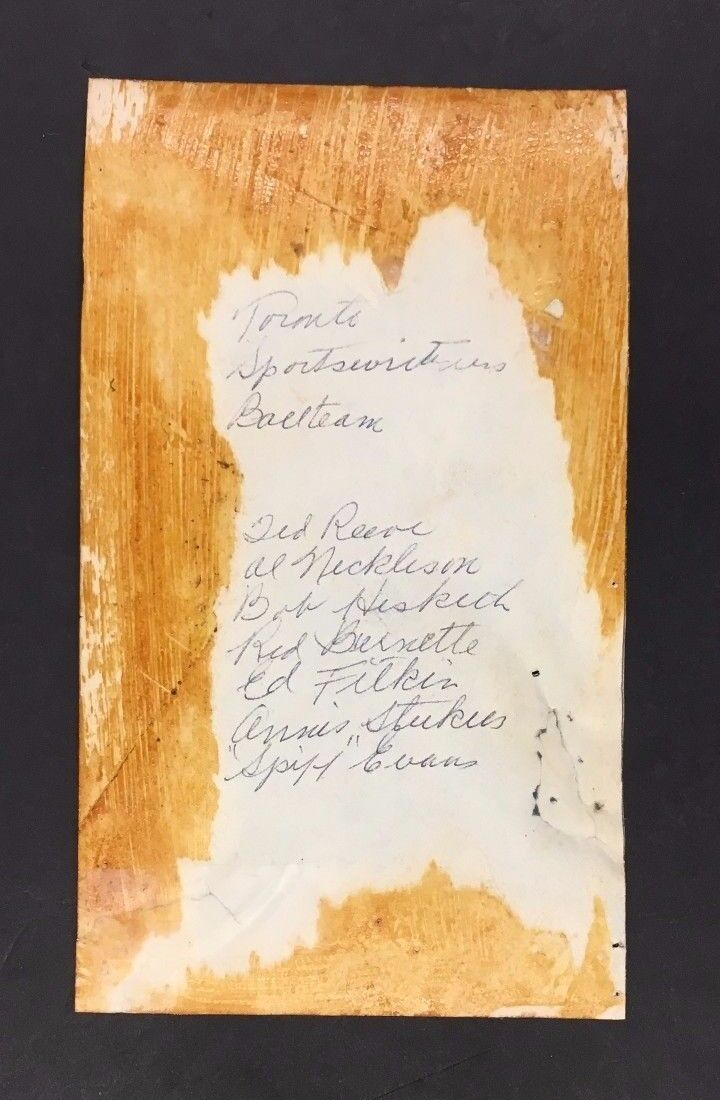 Toronto
Sportswriters
Ballteam
Ted Reeve
Al Nickleson
Bob Hesketh
Red Burnette
Ed Fitkin
Annis Stukus
"Spiff" Evans